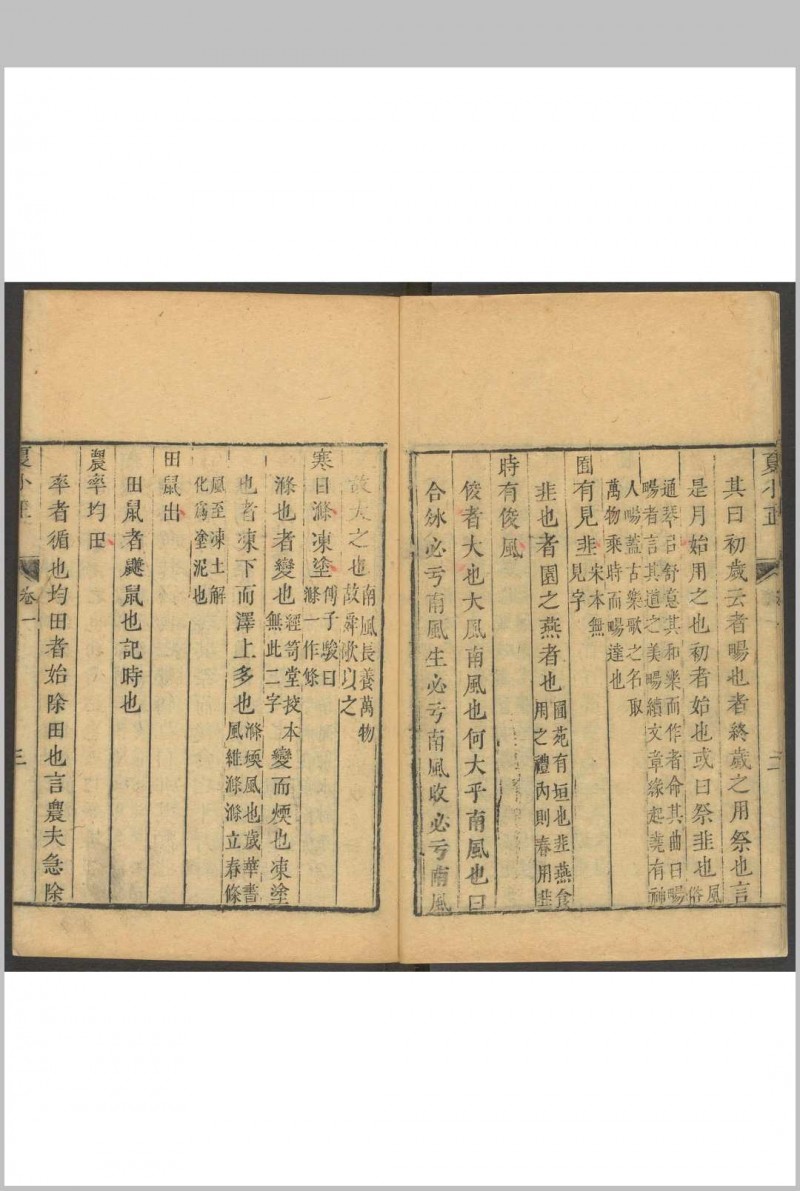 夏小正
二
其曰初歲云者暢也者終歲之用祭也言
是月始用之也初者始也或曰祭韭也風俗
通琴曰舒意其和樂而作者命其曲曰暢
暢者言其道之美暢續文章緣起堯有神
人暢蓋古樂歌之名取
萬物乘時而暢達也
囿有見韭宋本無
見字
韭也者園之燕者也囿苑有垣也韭燕食
用之禮內則春用韭
時有俊風
俊者大也大風南風也何大乎南風也曰
合冰必亏南風生必亏南風收必亏南風
故大之也南風長養萬物
故舜歌以之
寒日滌凍塗傅子駿曰
滌一作條
滌也者變也經笥堂挍本
無此二字變而煗也凍塗
也者凍下而澤上多也滌煗風也歲華書
風維滌滌立春條
風至凍土解
化爲塗泥也
田鼠出
田鼠者鼸鼠也記時也
農率均田
率者循也均田者始除田也言農夫急除
夏小正
卷一
三